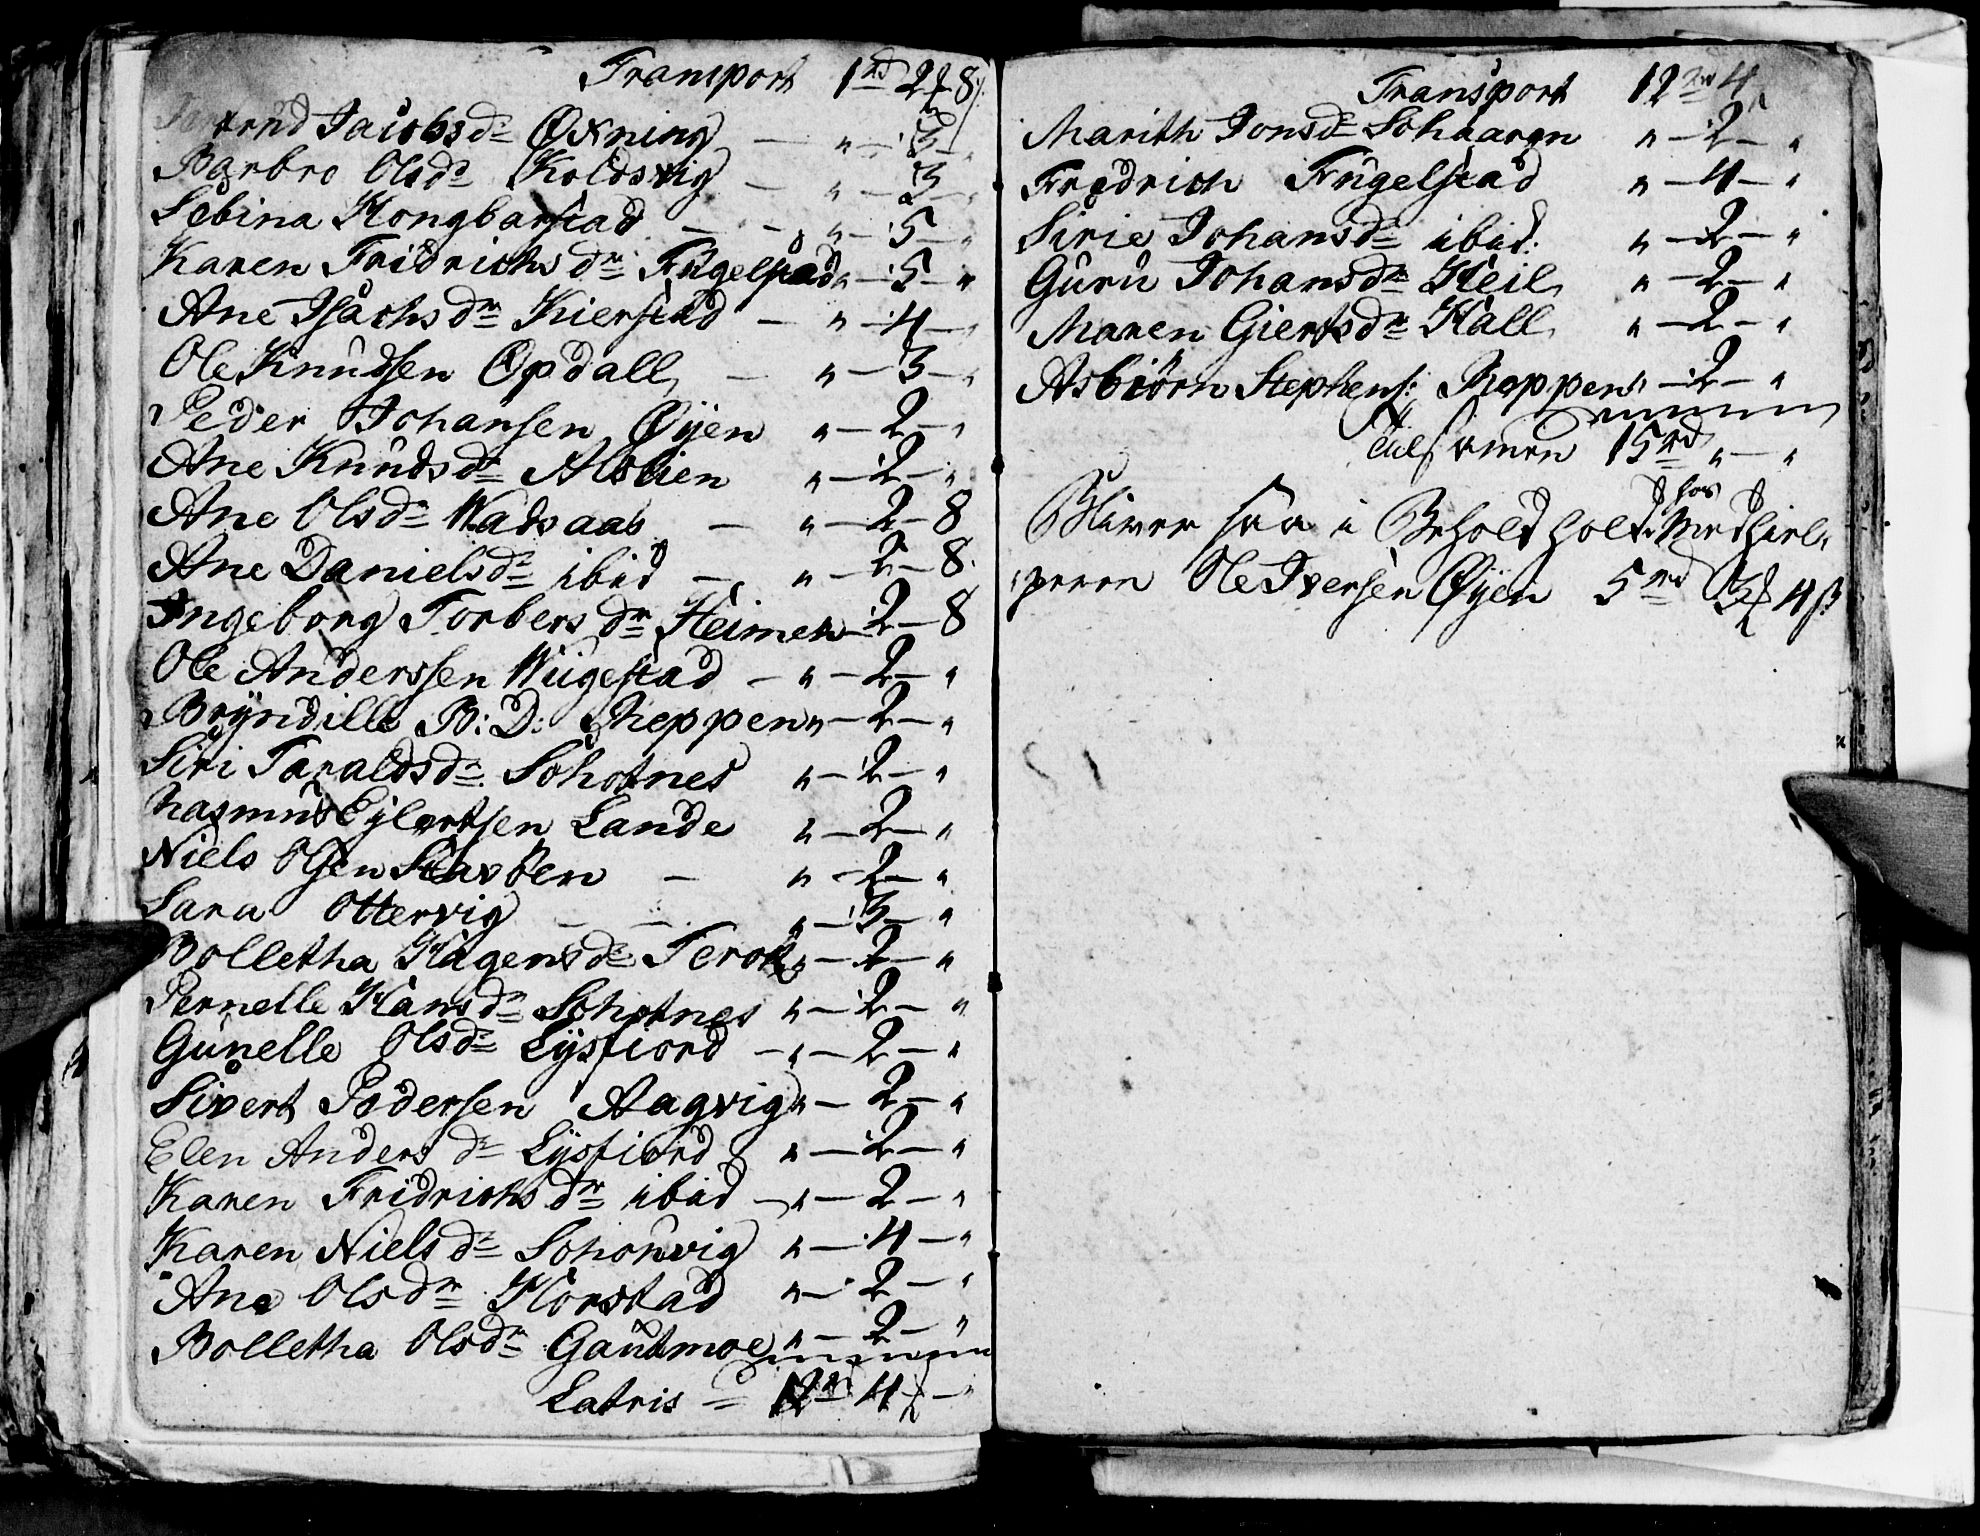 Transport 1 rd 2 8
Jacobsdr Øxning — " — 3 — "
Barbro Olsdr Koldsvig — " — 3 — "
Sebina Kongbarstad — — " — 5 — "
Karen Fridrichsdr Fugelstad " — 5 — "
Ane Isachsdr Kierstad — " — 4 — "
Ole Knudsen Opdall — " — 3 — "
Peder Johansen Øyen " — 2 — "
Ane Knudsdr " — 2 — "
Ane Olsdr Wadsaas — " — 2 — 8
Ane Danielsdr ibid — " — 2 — 8
Ingeborg Torbersdr Heimen — 2 — 8
Ole Anderssen Wiigestad — " — 2 — "
Bryndille B: D: Reppen " — 2 — "
Siri Taraldsdr Schotnes " — 2 — "
Rasmus Eylertsen Lande " — 2 — "
Niels Olsen — " — 2 — "
Sara Ottervig — — " — 3 — "
Bolletha Hagensdr " — 2 — "
Pernelle Hansdr Schotnes " — 2 — "
Gunelle Olsdr Lysfiord — " — 2 — "
Sivert Pedersen Aagvig " — 2 — "
Elen Andersdr Lysfiord " — 2 — "
Karen Fridrichsdr ibid — " — 2 — "
Karen Nielsdr Schonvig " — 4 — "
Ane Olsdr Horstad " — 2 — "
Bolletha Olsdr Gautmoe " — 2 — "
Latris 12 rd 4 — "
Transport 12 rd 4
Marith Jonsdr Schaaren " — 2 — "
Fredrich Fugelstad " — 4 — "
Sirie Johansdr ibid: " — 2 — "
Guru Johansdr Heil " — 2 — "
Maren Giertsdr Hall " — 2 — "
Asbiørn Stephens: Reppen " — 2 — "
Tilsamen 15 rd " — "
hos
Bliver saa i Behold Medhiel,
peren Ole Iversen Øyen 5 rd 3 4 ß